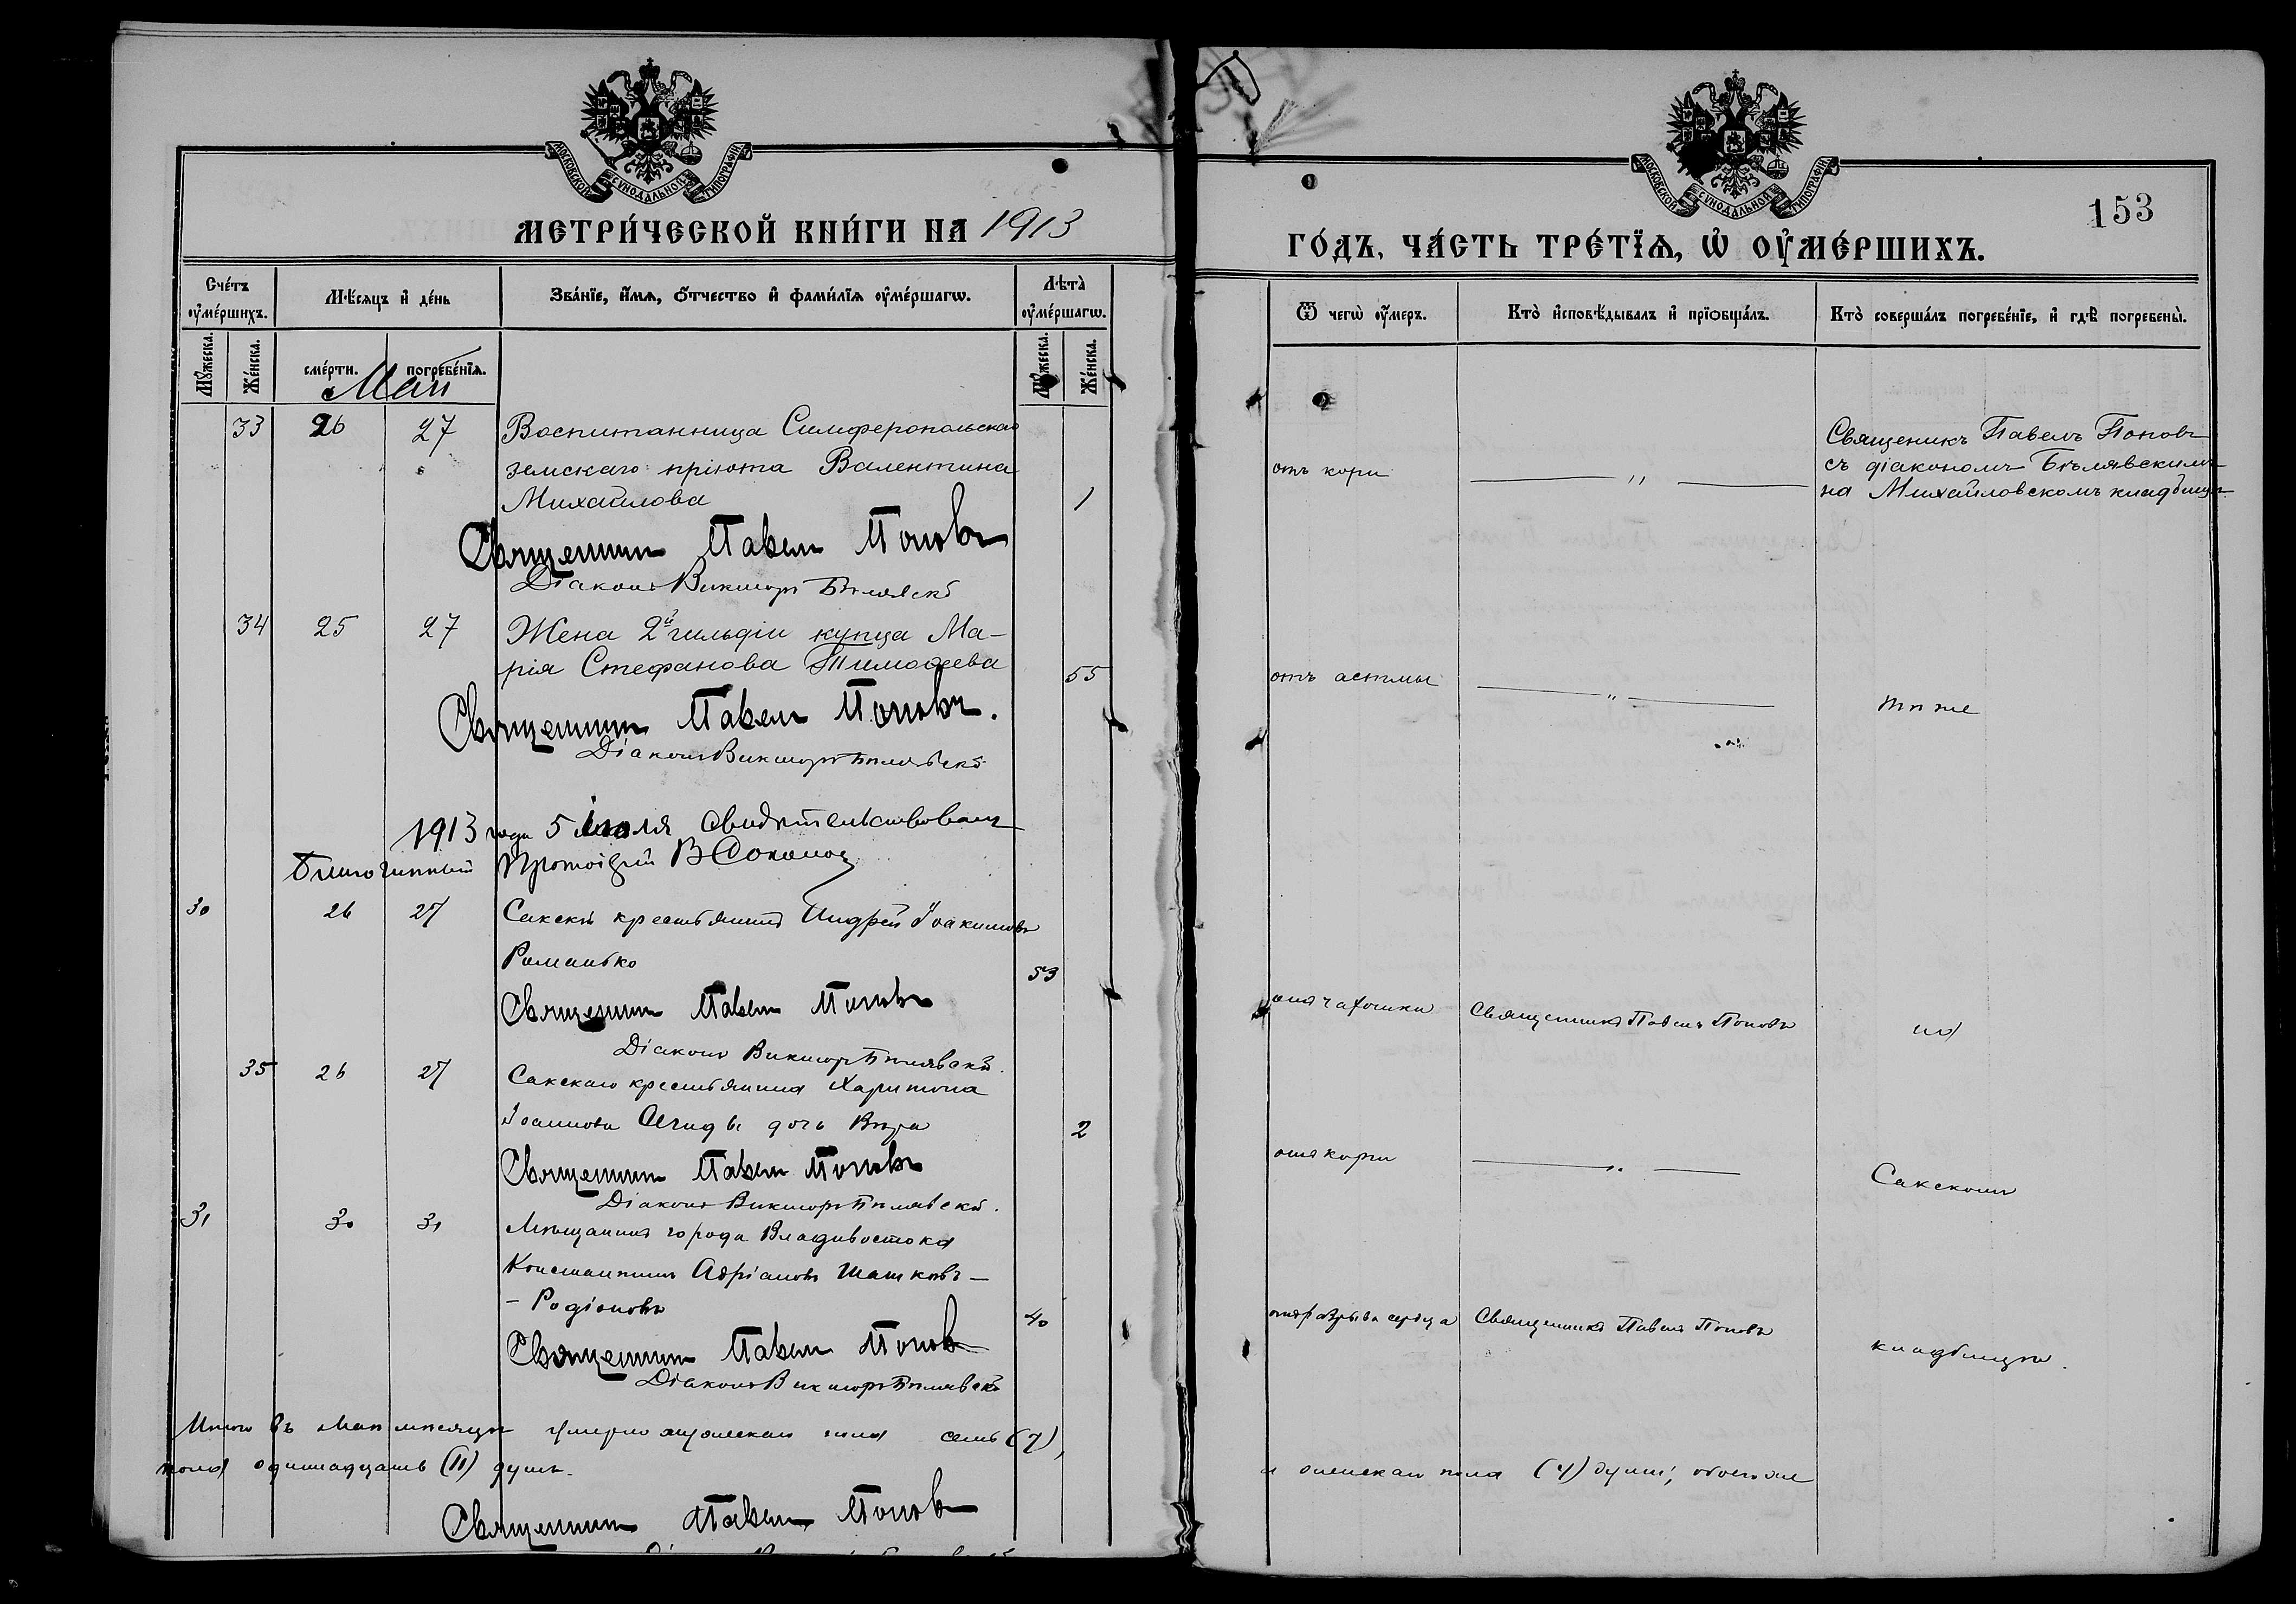 МОСКОВСКОЙ СѴНОДАЛЬНОЙ ТИПОГРАФІИ
МЕТРИ́ЧЕСКОЙ КНИ́ГИ НА 1913
Сче́тъ ᲂу҆ме́ршихъ.
Мѣ́сяцъ и҆ де́нь
Зва́нїе, и҆́мѧ, ѻ҆́тчество и҆ фами́лїѧ ᲂу҆ме́ршагѡ.
Лѣта̀ ᲂу҆ме́ршагѡ.
Мꙋ́жеска.
Же́нска.
сме́рти.
погребе́нїѧ.
Мꙋ́жеска.
Же́нска.
Май
33 26 27 Воспитанница Симферопольскаго
земскаго пріюта Валентина
Михайлова 1
Священникъ Павелъ Поповъ
Діаконъ Викторъ Бѣлявскій
34 25 27 Жена 2й гильдіи купца Ма-
рія Стефанова Тимоѳеева 55
Священникъ Павелъ Поповъ.
Діаконъ Викторъ Бѣлявскій
1913 года 5 іюля свидѣтельствовалъ
Благочинный Протоіерей В Соколов
30 26 27 Сакскій крестьянинъ Андрей Іоакимовъ
Романько 53
Священникъ Павелъ Поповъ
Діаконъ Викторъ Бѣлявскій.
35 26 27 Сакскаго крестьянина Харитона
Іоаннова дочь Вѣра 2
Священникъ Павелъ Поповъ
Діаконъ Викторъ Бѣлявскій.
31 30 31 Мѣщанинъ города Владивостока
Константинъ Адріановъ Шашковъ-
- Родіоновъ 40
Священникъ Павелъ Поповъ
Діаконъ Викторъ Бѣлявскій
Итого въ Маѣ мѣсяцѣ умерло мужескаго пола семь (7),
пола одиннадцать (11) душъ.
Священникъ Павелъ Поповъ
МОСКОВСКОЙ СѴНОДАЛЬНОЙ ТИПОГРАФІИ
153
ГО́ДЪ, ЧА́СТЬ ТРЕ́ТЇѦ, Ѡ҆ ОУ҆МЕ́РШИХЪ.
Ѿ чегѡ̀ ᲂу҆́меръ.
Кто̀ и҆сповѣ́дывалъ и҆ прїѡбща́лъ.
Кто̀ соверша́лъ погребе́нїе, и҆ гдѣ̀ погребены̀.
Священикъ Павелъ Поповъ
съ діакономъ Бѣлявскимъ
отъ кори — " —
на Михайловскомъ кладбищѣ
отъ астмы — " — тѣ же
отъ чахотки Священникъ Павелъ Поповъ на
отъ кори — " — Сакскомъ
отъ разрыва сердца Священникъ Павелъ Поповъ кладбищѣ.
и женскаго пола (4) души, обоего же